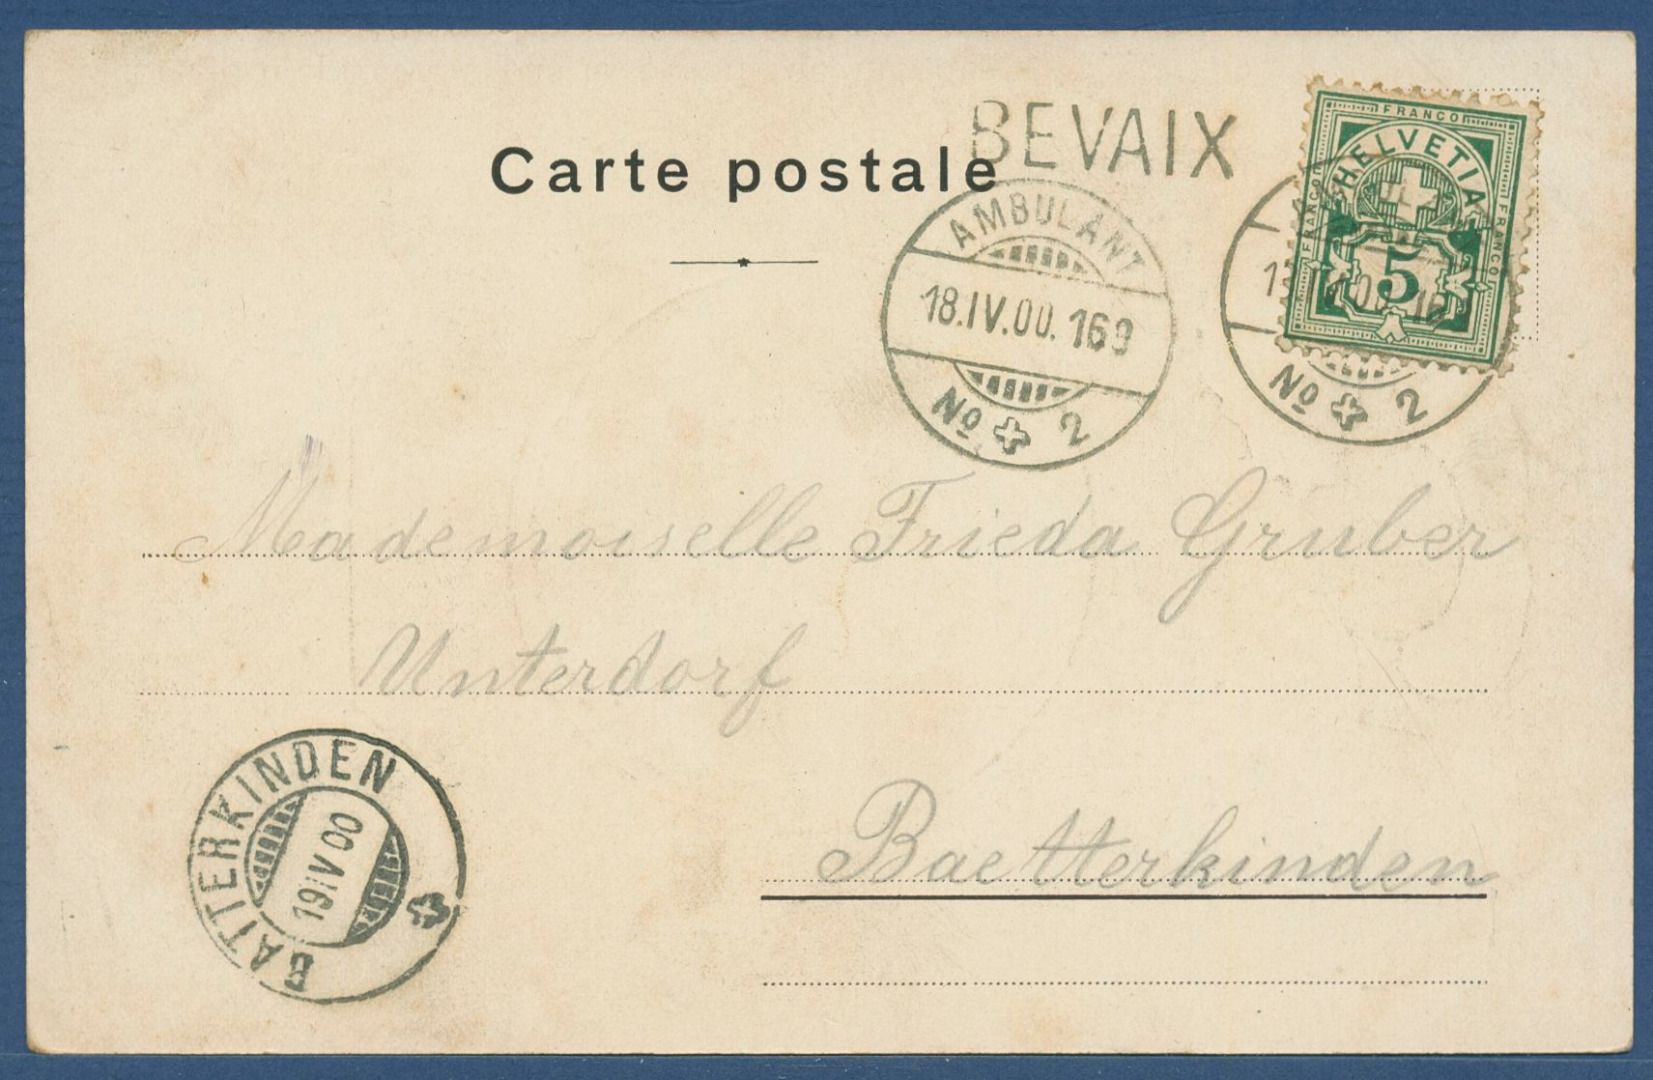 BEVAIX
Carte postale
FRANCO
HELVETIA
FRANCO
FRANCO
5
AMBULANT
18.IV.00.169
No 2
No 2
Mademoiselle Frieda Gruber
Unterdorf
Baetterkinden
BATTERKINDEN
19 IV 00